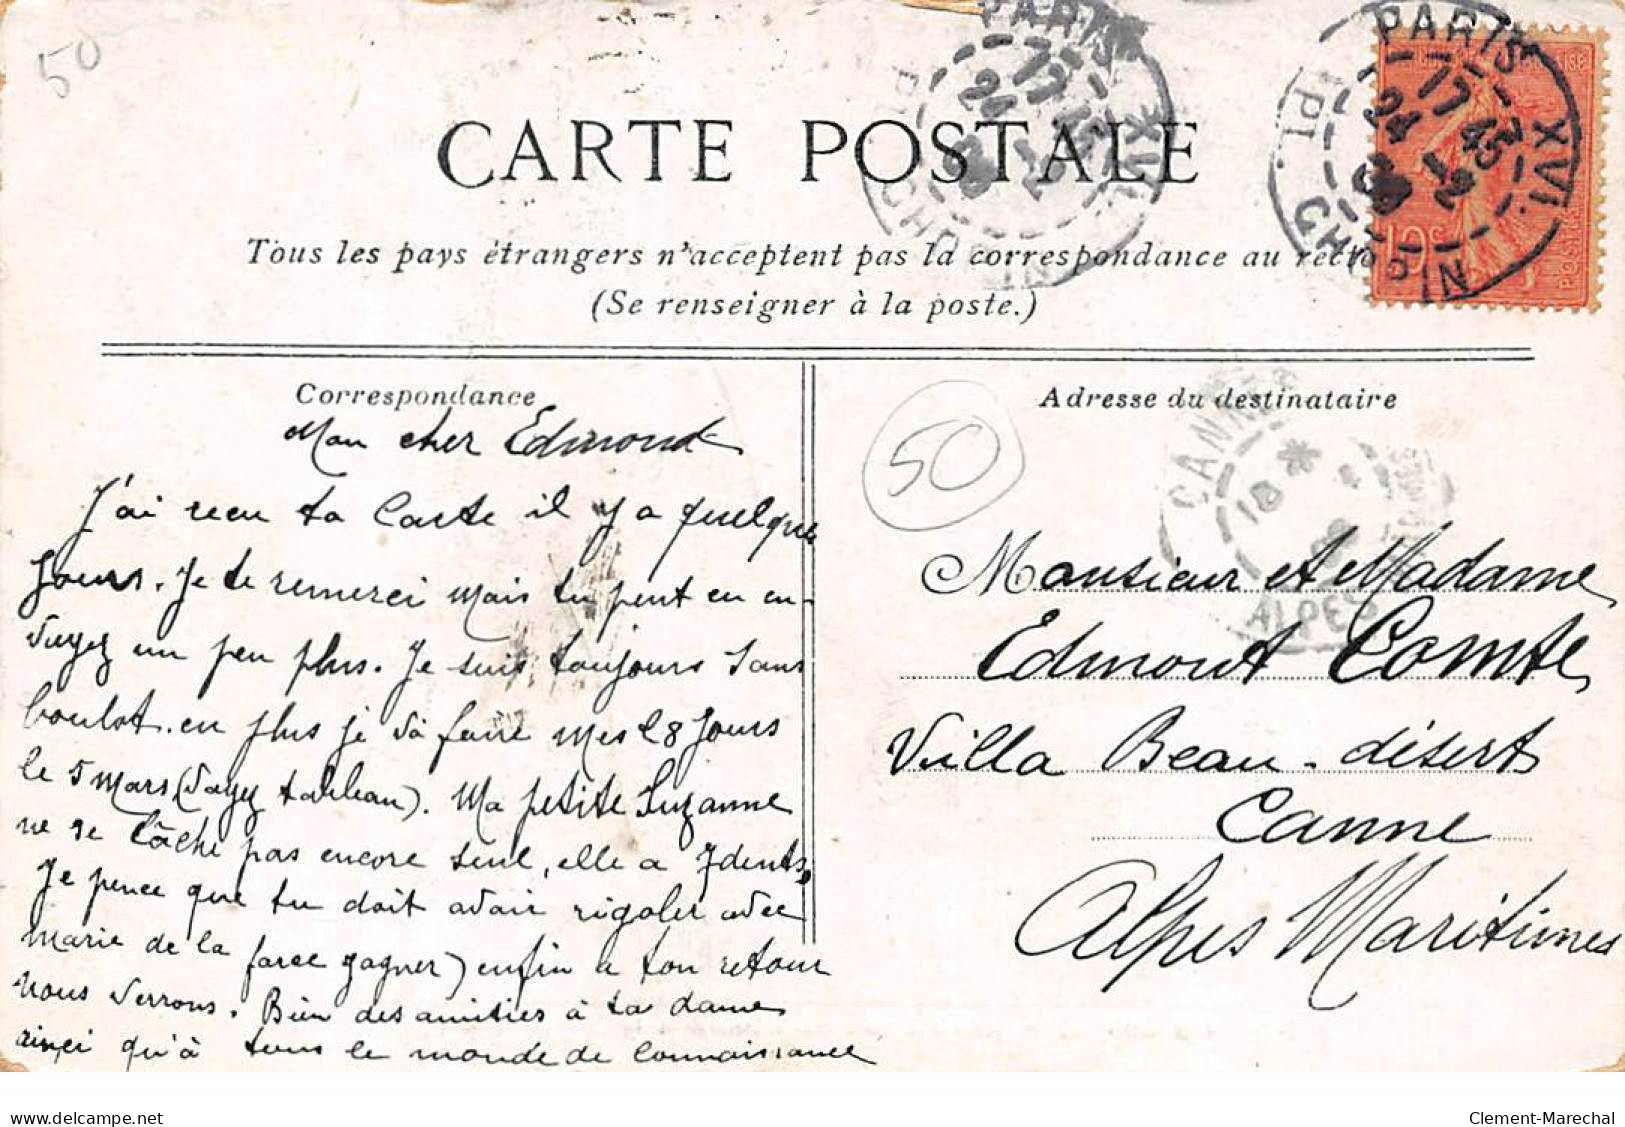 50
CARTE POSTALE
PARIS XVI.
PL. CHOPIN
17 45
24 - 2
PARIS XVI.
PL. CHOPIN
17 45
24 - 2
10c
Tous les pays étrangers n'acceptent pas la correspondance au recto
(Se renseigner à la poste.)
Correspondance
Mon cher Edmond
J'ai recu ta Carte il y a quelque
Jours. Je te remerci mais tu peut en en-
voyez un peu plus. Je suis toujours sans
boulot. en plus je và faire mes 28 Jours
le 5 mars (voyez tableau). Ma petite Suzanne
ne se lâche pas encore seul, elle a 7 dents,
Je pence que tu doit avoir rigoler avec
marie de la farce gagner) enfin a ton retour
nous verrons. Bien des amitiés à ta dame
ainçi qu'à tous le monde de Connaissance
Adresse du destinataire
50
CANNES
ALPES
Monsieur et Madame
Edmont Comte
Villa Beau-déserts
Canne
Alpes Maritimes
delcampe.net
Clement-Marechal